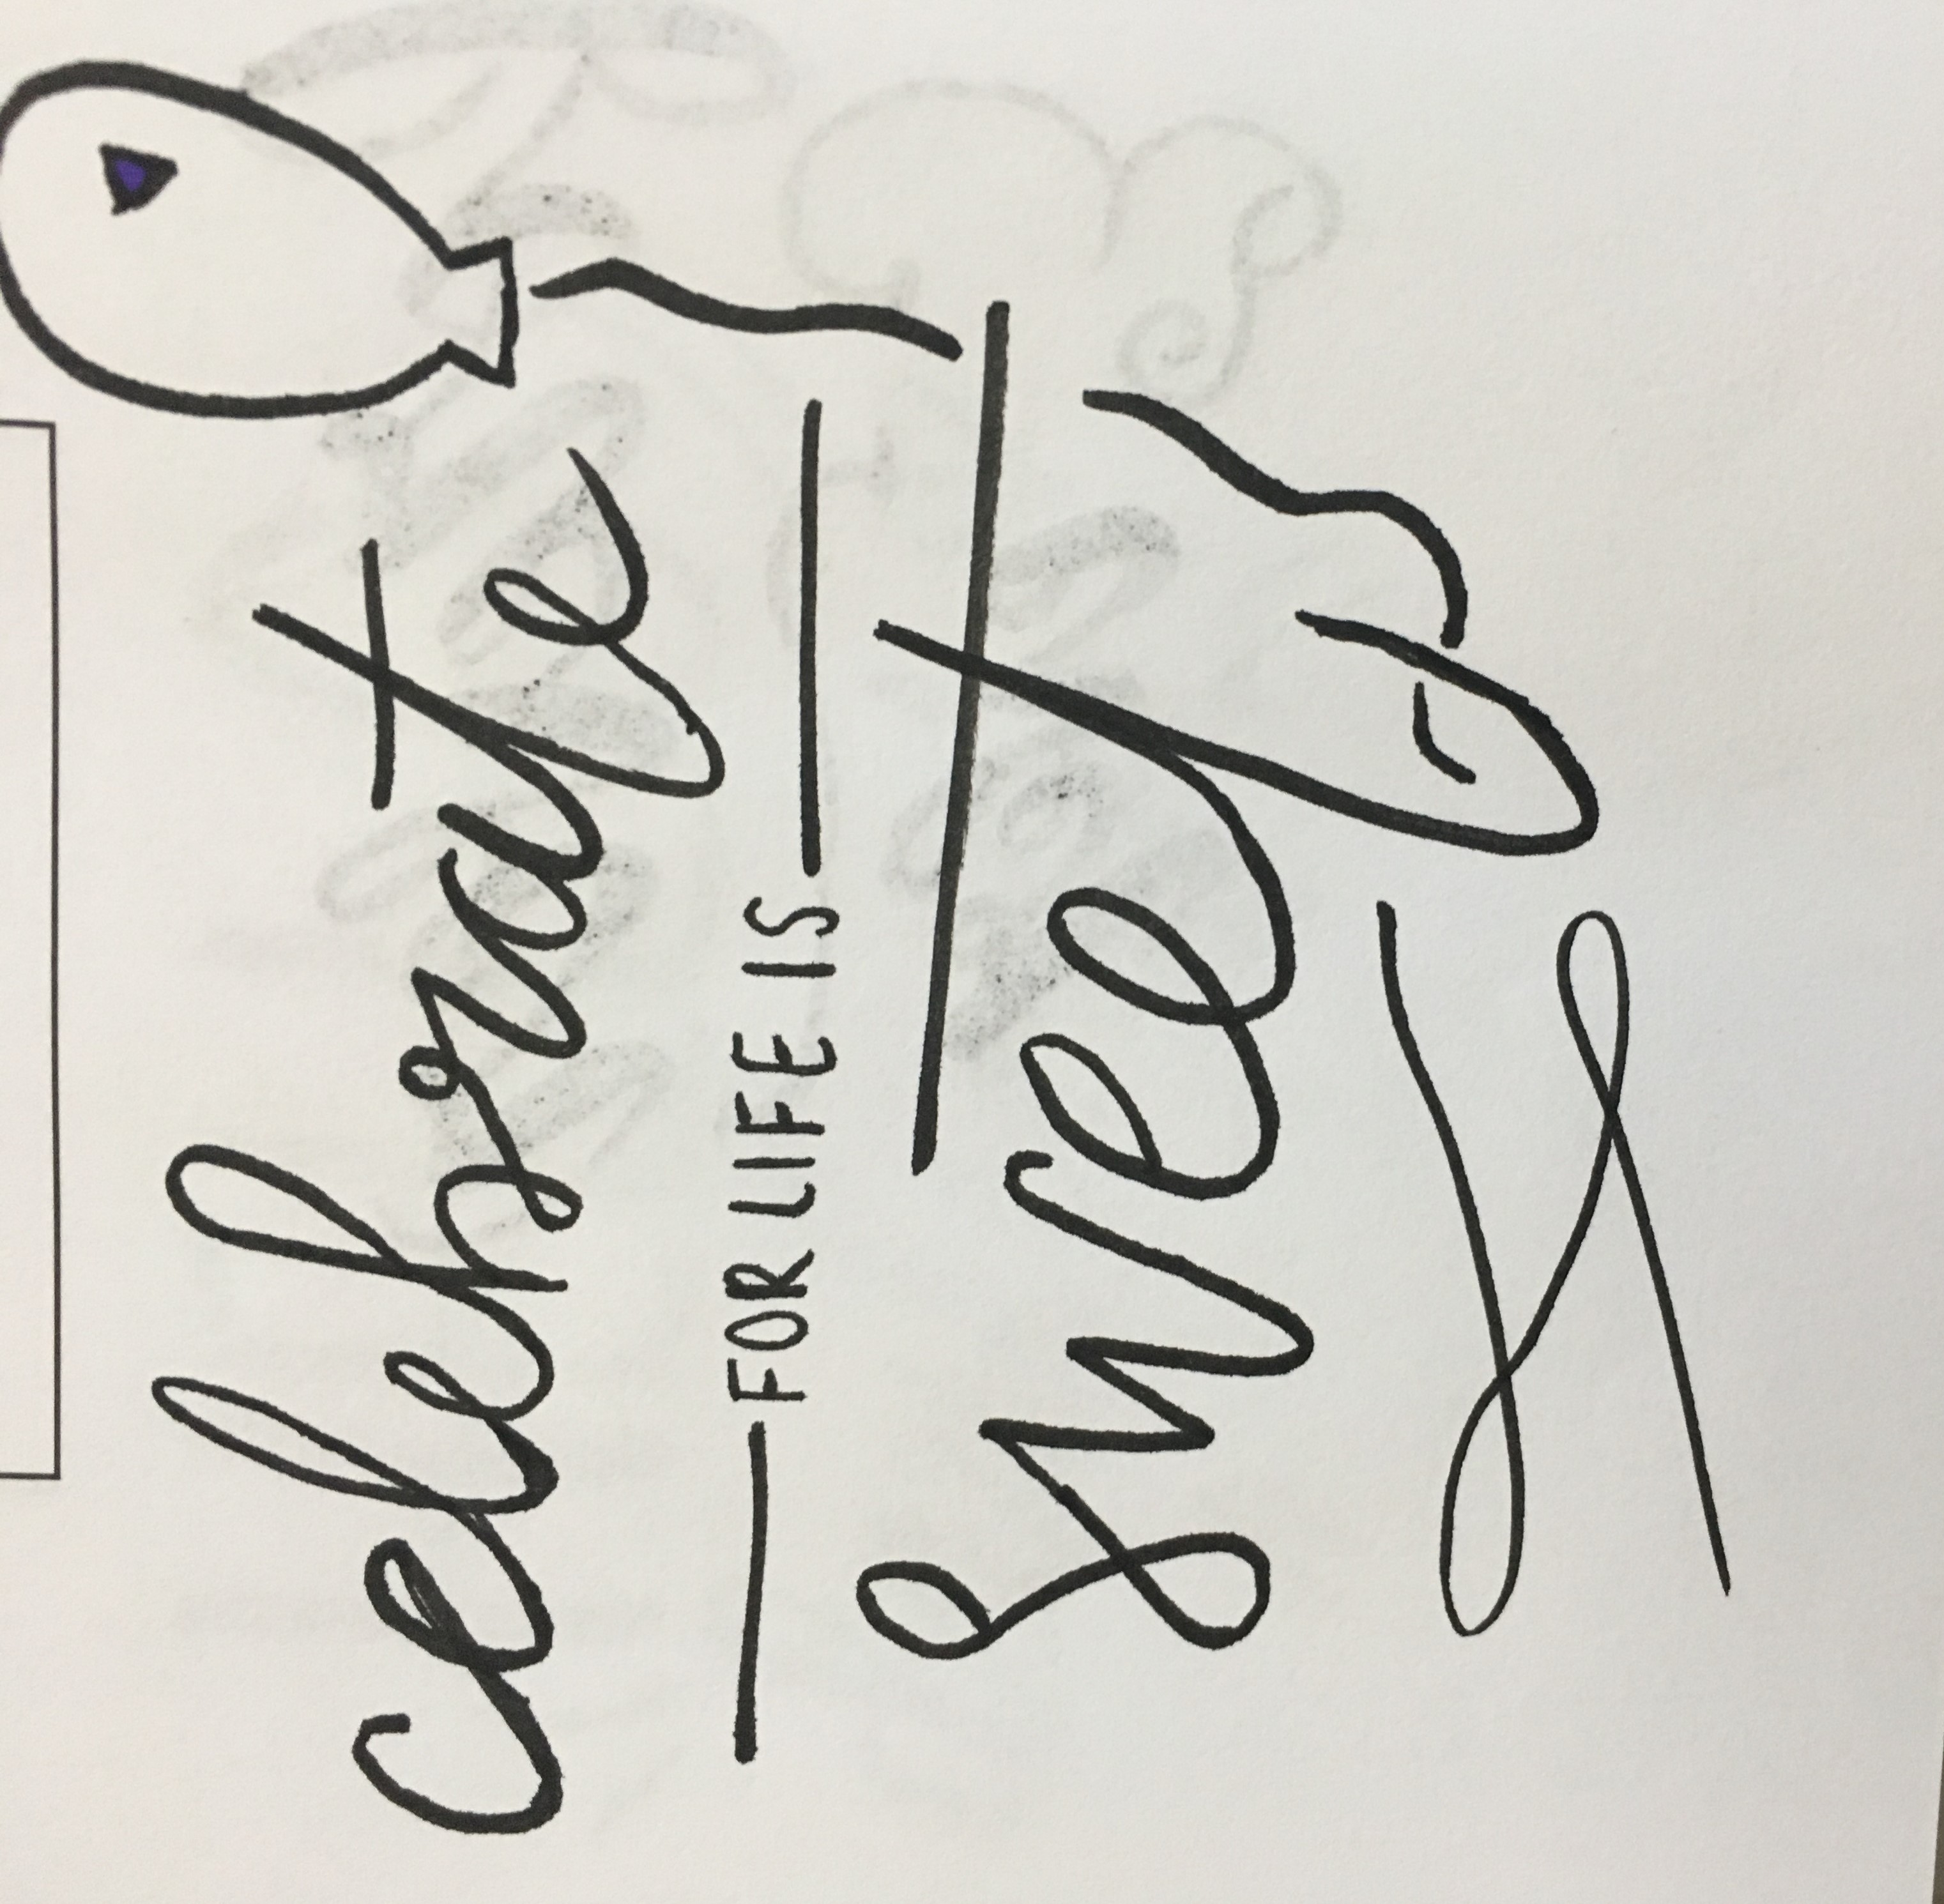 celebrate
FOR LIFE IS
sweet